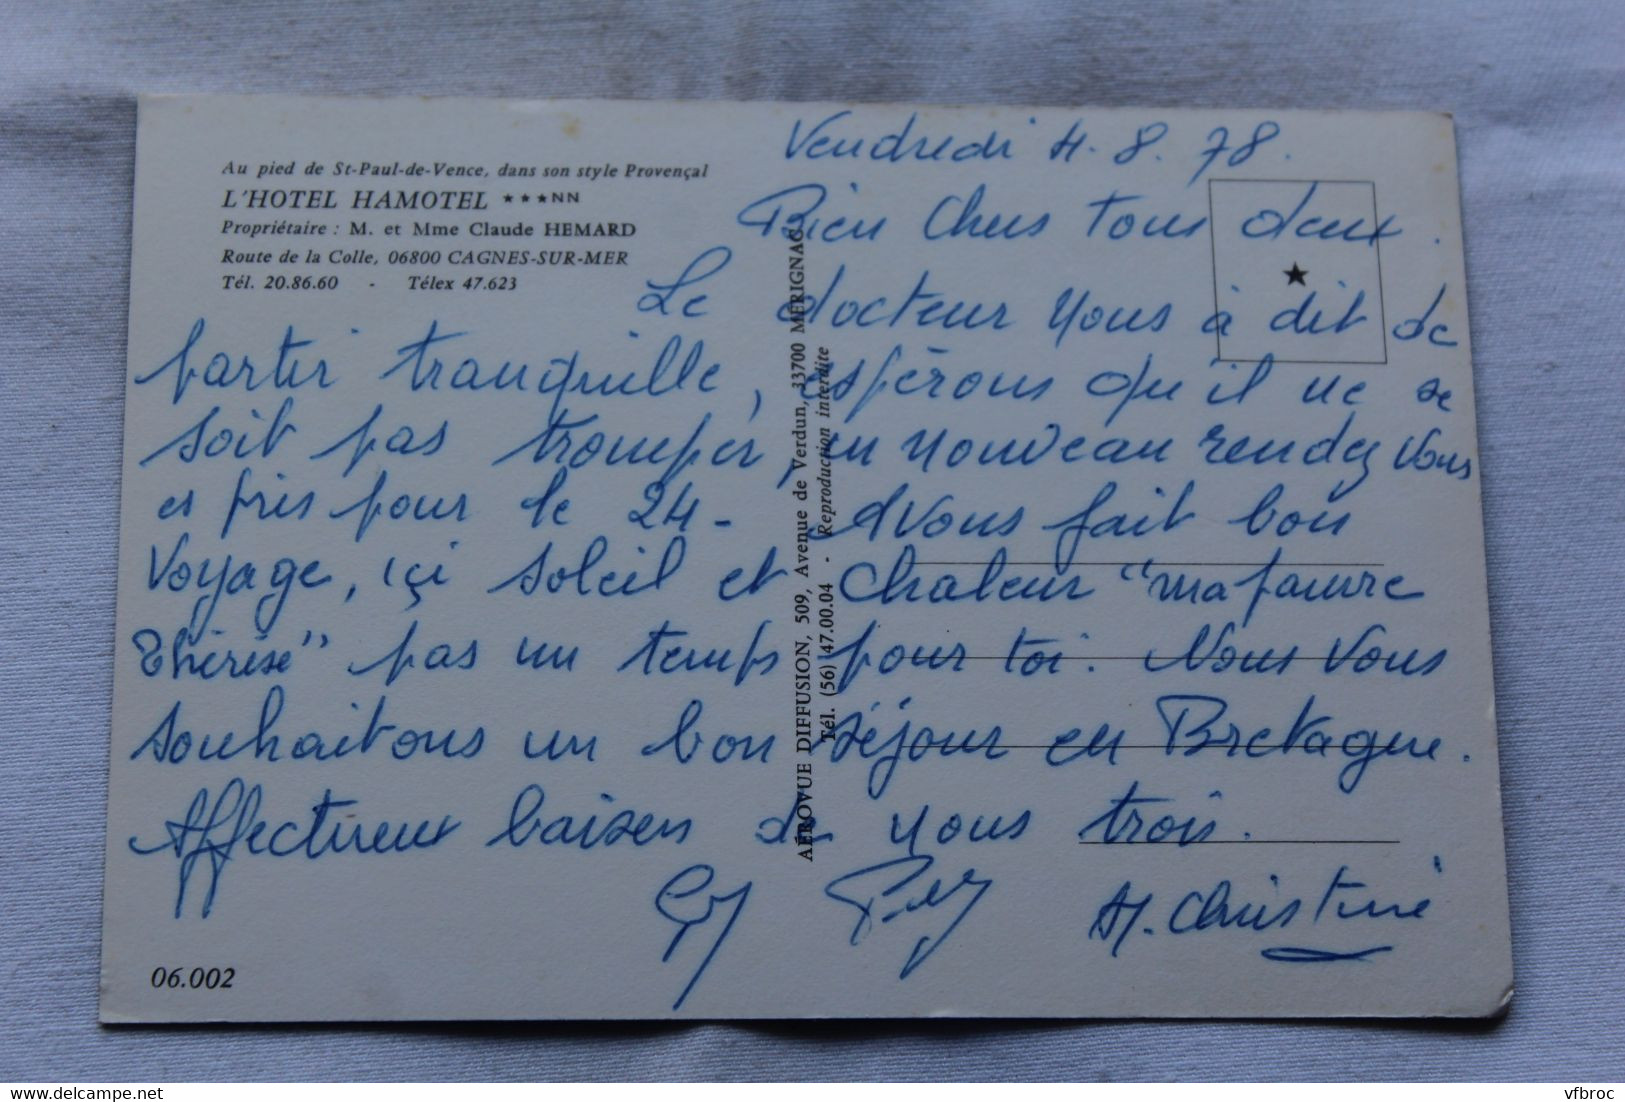 Au pied de St-Paul-de-Vence, dans son style Provençal
L'HOTEL HAMOTEL ★★★NN
Propriétaire : M. et Mme Claude HEMARD
Route de la Colle, 06800 CAGNES-SUR-MER
Tél. 20.86.60 - Télex 47.623
Vendredi 4.8.78.
Bien Chers tous deux.
Le docteur nous à dit de
partir tranquille, espérons qu'il ne se
soit pas tromper, un nouveau rendez vous
es pris pour le 24 - Avons fait bon
Voyage, içi soleil et chaleur "ma pauvre
Thérèse" pas un temps pour toi. Nous Vous
souhaitons un bon séjour en Bretagne.
Affectueux baisers de nous trois.
M. Christine
AÉROVUE DIFFUSION, 509, Avenue de Verdun, 33700 MÉRIGNAC
Tél. (56) 47.00.04 - Reproduction interdite
06.002
delcampe.net
vfbroc